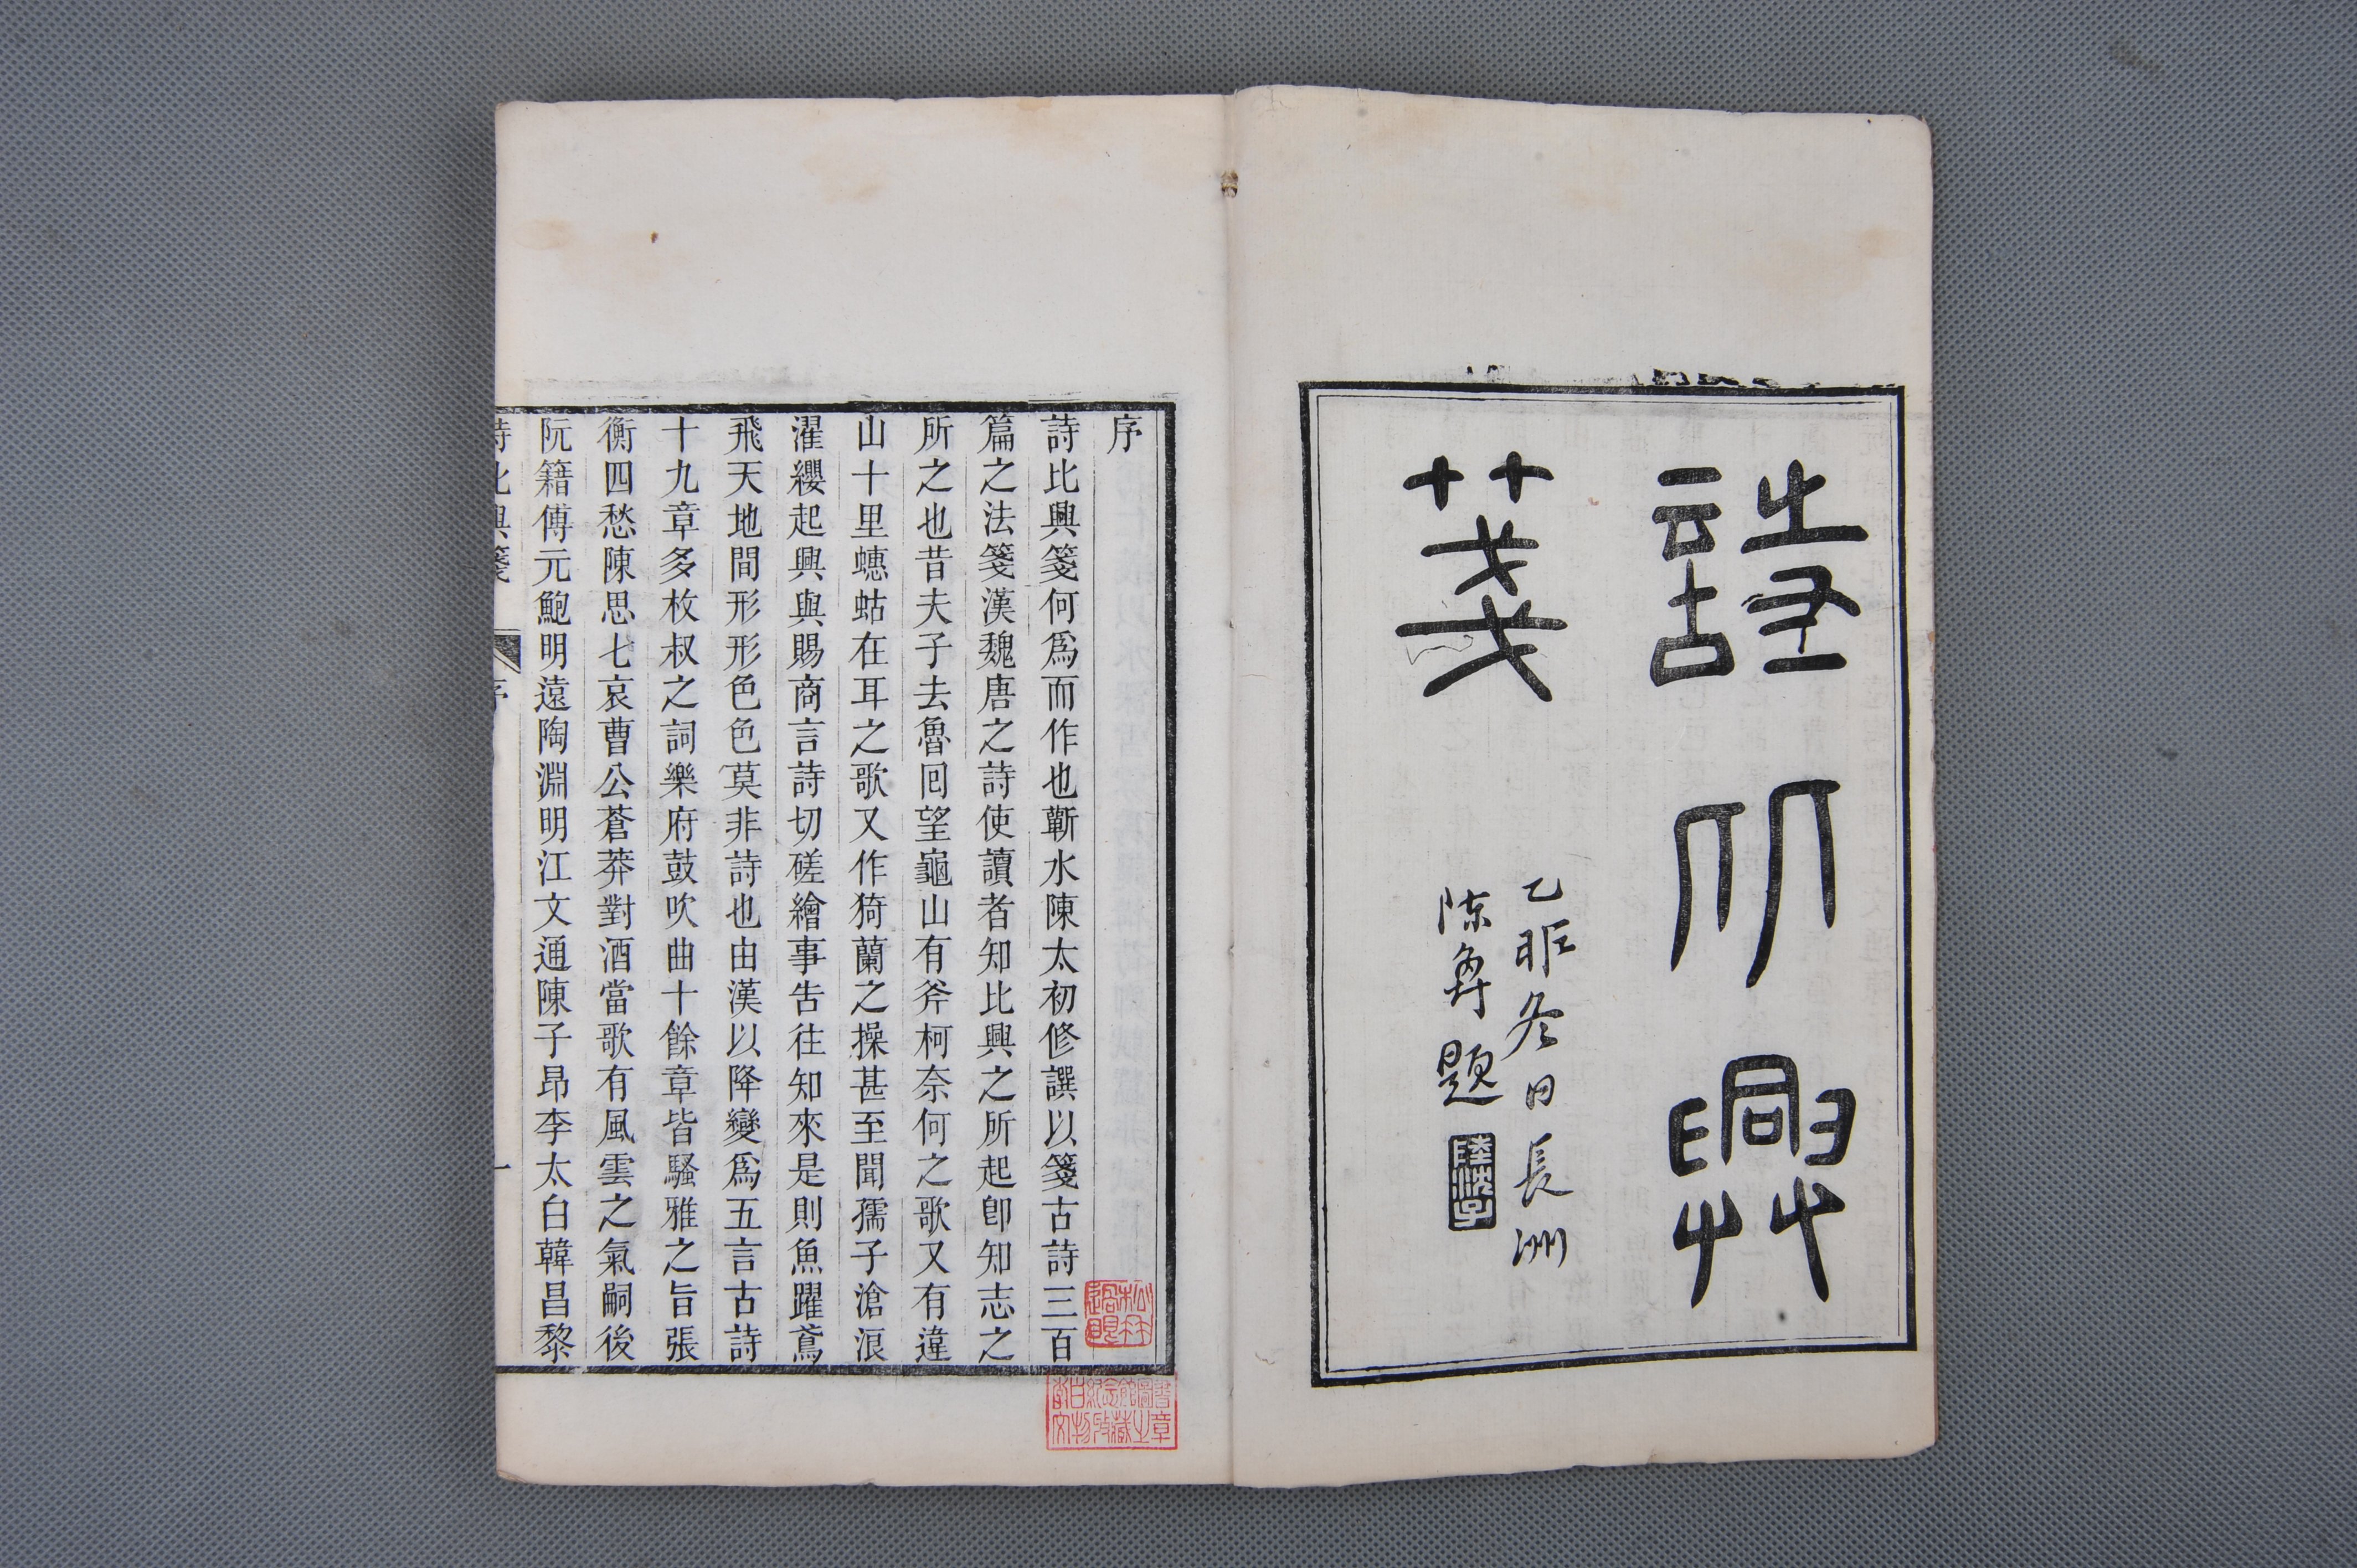 詩比興
箋
乙卯冬日長洲
陳奐題
序
詩比興箋何為而作也蘄水陳太初修譔以箋古詩三百
篇之法箋漢魏唐之詩使讀者知比興之所起卽知志之
所之也昔夫子去魯回望龜山有斧柯奈何之歌又有違
山十里蟪蛄在耳之歌又作猗蘭之操甚至聞孺子滄浪
濯纓起興與賜商言詩切磋繪事告往知來是則魚躍鳶
飛天地間形形色色莫非詩也由漢以降變爲五言古詩
十九章多枚叔之詞樂府鼓吹曲十餘章皆騷雅之旨張
衡四愁陳思七哀曹公蒼莽對酒當歌有風雲之氣嗣後
阮籍傅元鮑明遠陶淵明江文通陳子昂李太白韓昌黎
詩比興箋 序 一